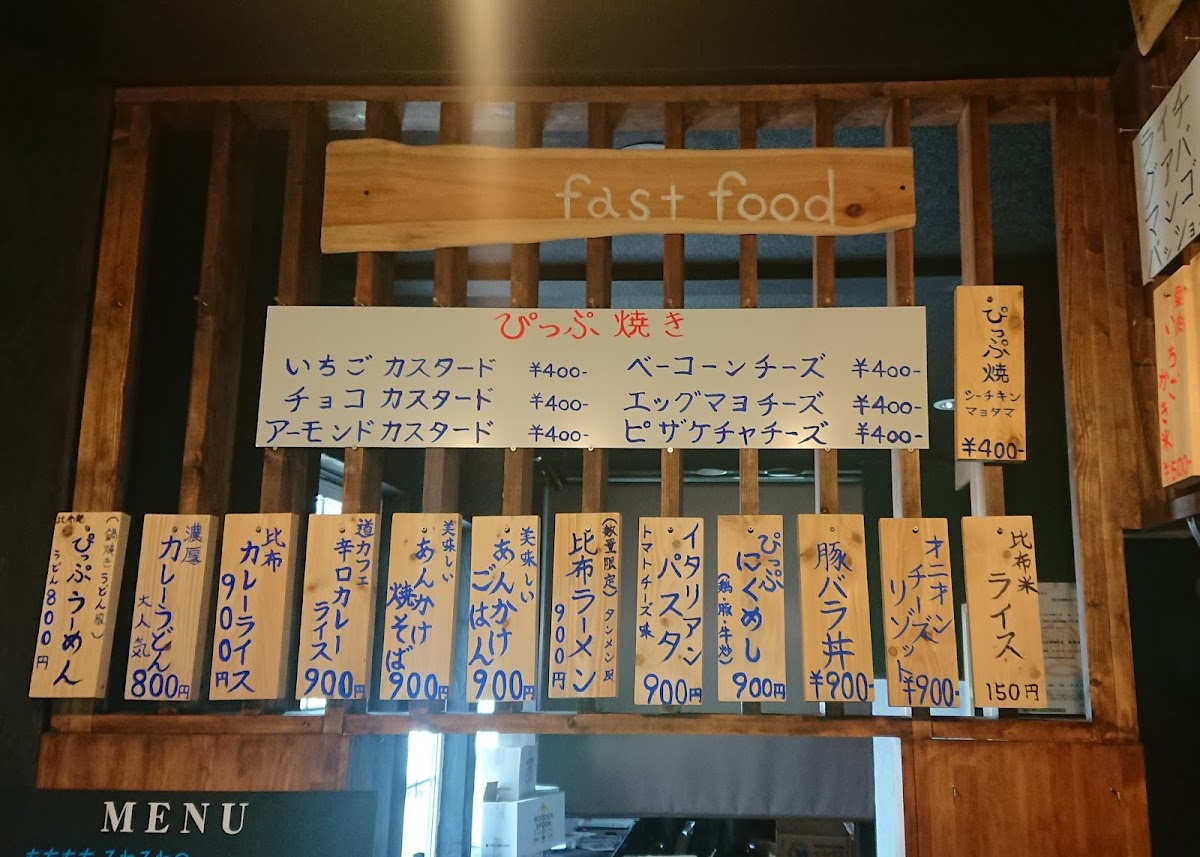 fast food
ぴっぷ焼き
いちごカスタード ¥400-
チョコカスタード ¥400-
アーモンドカスタード ¥400-
ベーコーンチーズ ¥400-
エッグマヨチーズ ¥400-
ピザケチャチーズ ¥400-
ぴっぷ焼
シーチキン
マヨタマ
¥400-
(鍋焼きうどん風)
ぴっぷうーめん
うどん800円
濃厚
カレーうどん
大人気
800円
比布
カレーライス
900円
道カフェ
辛口カレー
ライス
900円
美味しい
あんかけ
焼そば
900円
美味しい
あんかけ
ごはん
900円
(数量限定)タンメン風
比布ラーメン
900円
イタリアン
パスタ
トマトチーズ味
900円
ぴっぷ
にくめし
(鶏・豚・牛炒)
900円
豚バラ丼
¥900-
オニオン
チーズ
リゾット
¥900-
比布米
ライス
150円
いちごかき氷
¥500-
MENU